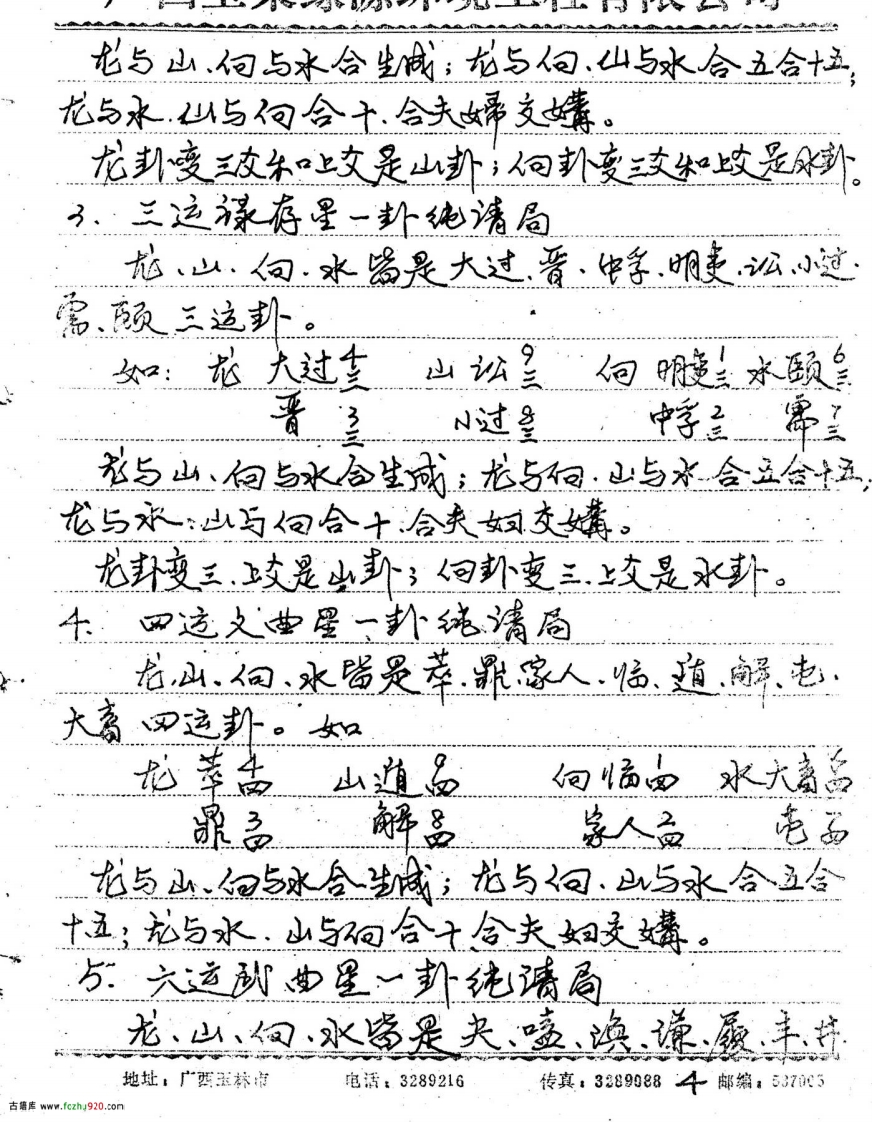 龙与山、向与水合生成；龙与向、山与水合五合十五，
龙与水、山与向合十、合夫婦交媾。
龙卦变三爻和上爻是山卦；向卦变三爻和上爻是水卦。
3、三运禄存星一卦纯清局
龙、山、向、水皆是大过、晋、中孚、明夷、讼、小过、
需、颐三运卦。
如：龙 大过 4三 山 讼 9三 向 明夷 1三 水 颐 6三
晋 3三 小过 8三 中孚 2三 需 7三
龙与山、向与水合生成；龙与向、山与水合五合十五，
龙与水、山与向合十、合夫妇交媾。
龙卦变三、上爻是山卦；向卦变三、上爻是水卦。
4、四运文曲星一卦纯清局
龙、山、向、水皆是萃、鼎、家人、临、遁、解、屯、
大畜四运卦。如
龙 萃 4四 山 遁 9四 向 临 1四 水 大畜 6四
鼎 3四 解 8四 家人 2四 屯 7四
龙与山、向与水合生成；龙与向、山与水合五合
十五；龙与水、山与向合十合夫妇交媾。
5、六运武曲星一卦纯清局
龙、山、向、水皆是夬、嗑、涣、谦、履、丰、井、
地址：广西玉林市 电话：3289216 传真：3289088 4 邮编：537005
古籍库 www.fczhy920.com